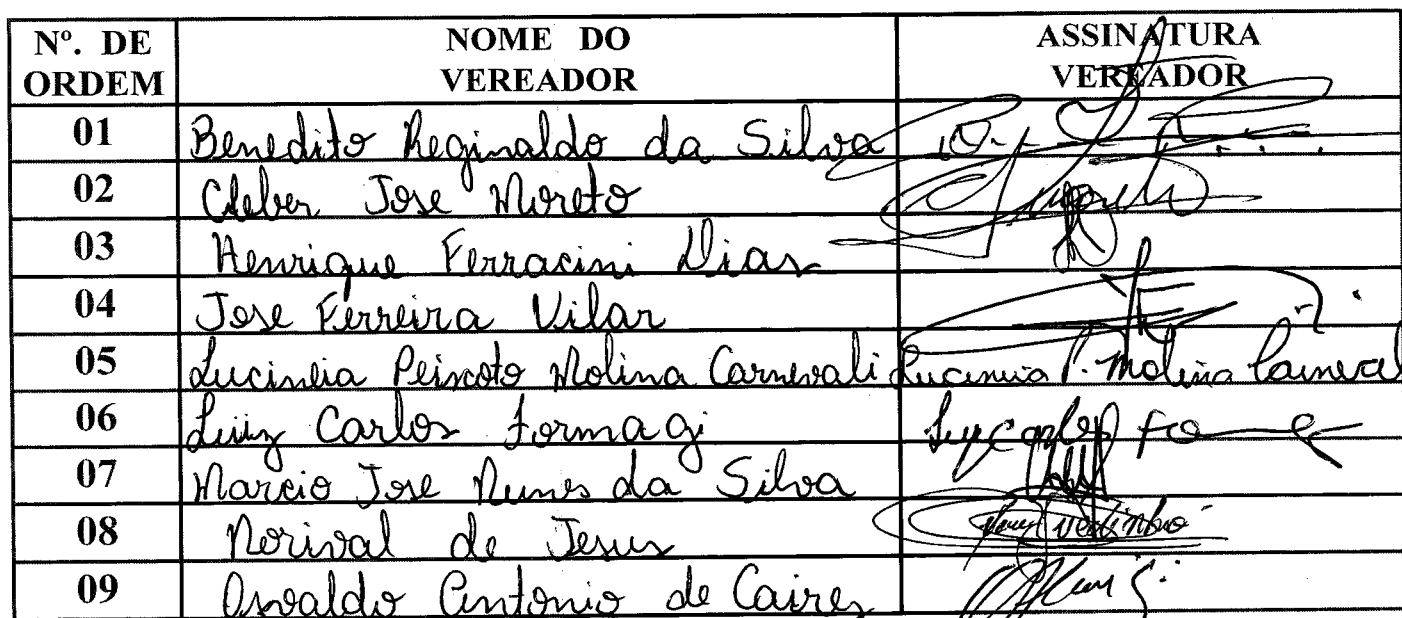 Nº. DE ORDEM NOME DO VEREADOR ASSINATURA VEREADOR
01 Benedito Reginaldo da Silva
02 Cleber Jose Moreto
03 Henrique Ferracini Dias
04 Jose Ferreira Vilar
05 Lucineia Peixoto Molina Carnevali Lucineia P. Molina Carneval
06 Luiz Carlos Formagi
07 Marcio Jose Nunes da Silva
08 Norival de Jesus
09 Osvaldo Antonio de Caires